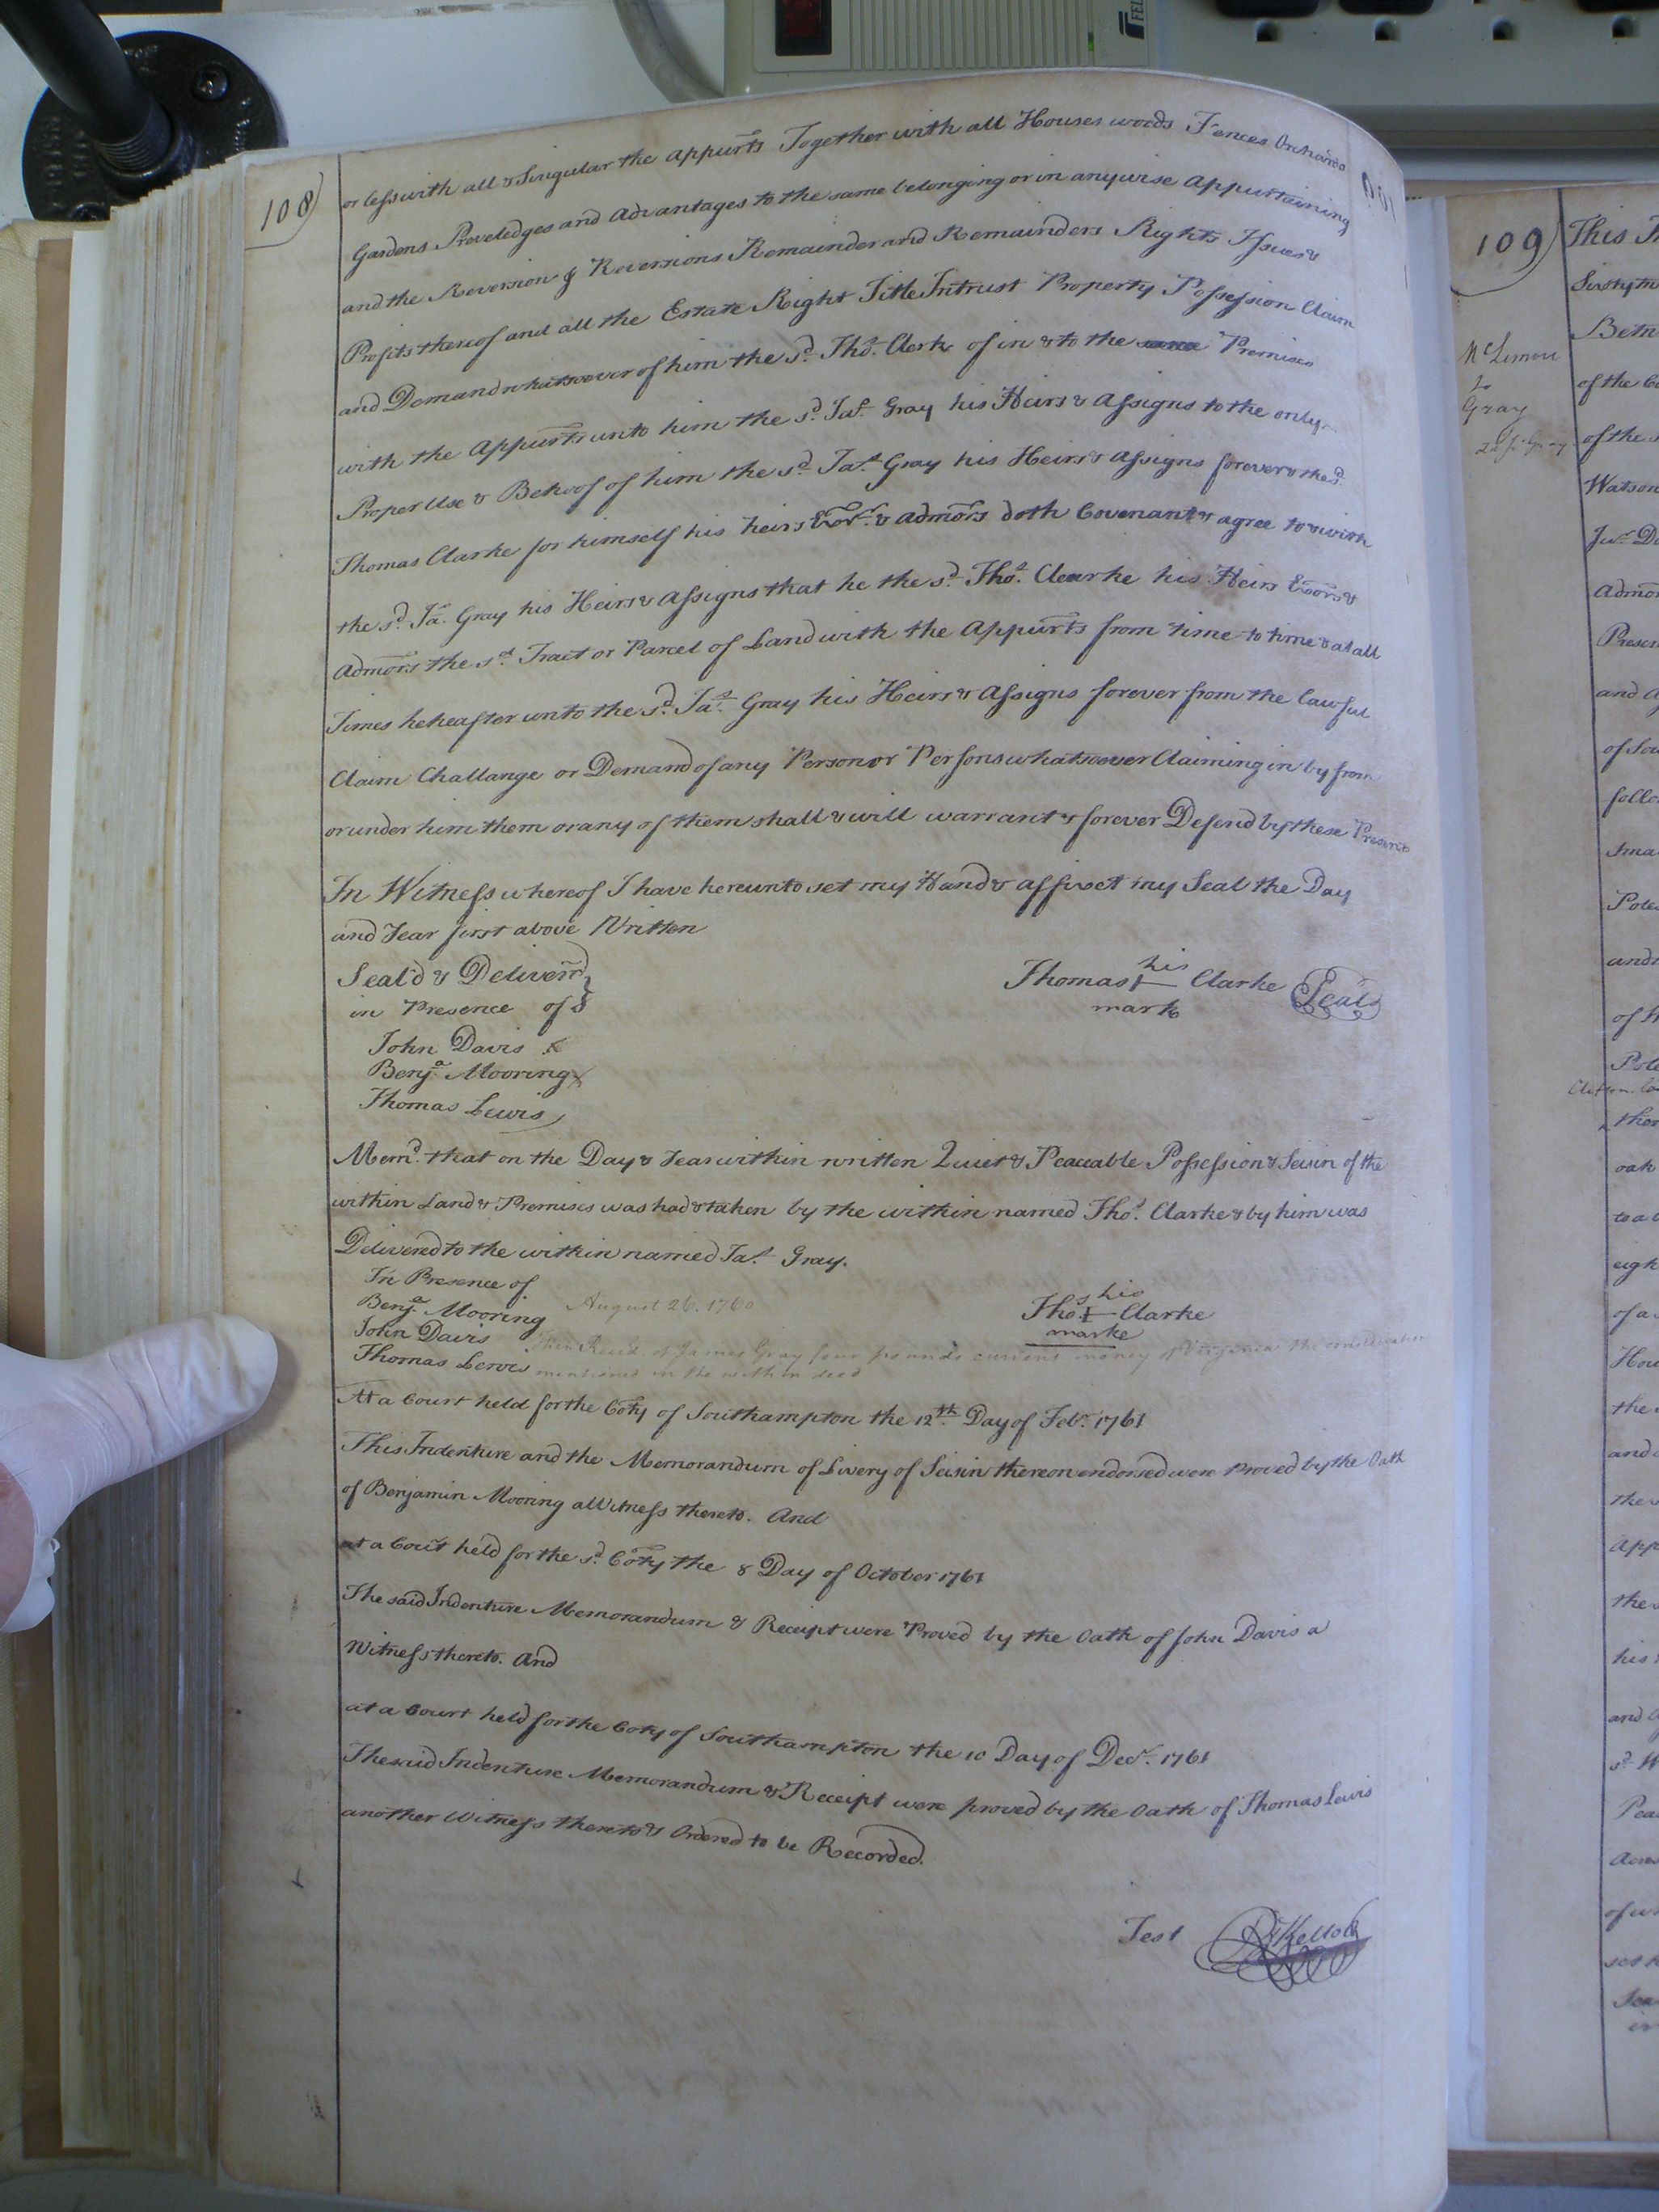 108
or less with all & Singular the appurts Together with all Houses woods Fences Orchards
Gardens Preveledges and advantages to the same belonging or in anywise appurtaining
and the Reversion & Reversions Remainder and Remainders Rights Issues &
Profits thereof and all the Estate Right Title Intrust Property Possession Claim
and Demand whatsoever of him the sd. Thos. Clerk of in & to the Premises
with the Appurts unto him the sd. Jas. Gray his Heirs & assigns to the only
Proper Use & Behoof of him the sd. Jas. Gray his Heirs & assigns forever & the sd.
Thomas Clarke for himself his heirs Exors. & admors doth Covenant & agree to & with
the sd. Ja. Gray his Heirs & assigns that he the sd. Thos. Clearke his Heirs Exors &
admors the sd. Tract or Parcel of Land with the appurts from time to time & at all
Times heheafter unto the sd. Jas. Gray his Heirs & assigns forever from the lawful
Claim Challange or Demand of any Person or Persons whatsoever Claiming in by from
or under him them or any of them shall & will warrant & forever Defend by these Presents
In Witness whereof I have hereunto set my Hand & affixet my Seal the Day
and Year first above Written
Seal'd & Deliver'd
in Presence of
John Davis
Benja. Mooring
Thomas Lewis
Thomas his Clarke Seal
mark
Memd. that on the Day & Year within written Quiet & Peaceable Possession & Seisin of the
within Land & Premises was had & taken by the within named Thos. Clarke & by him was
Delivered to the within named Jas. Gray.
In Presence of
Benja. Mooring
John Davis
Thomas Lewis
Thos. his Clarke
marke
August 26. 1760
Then Recd. of James Gray four pounds current money of Virginia the consideration
mentioned in the within deed
At a Court held for the Coty of Southampton the 12th. Day of Feby. 1761
This Indenture and the Memorandum of Livery of Seisin thereon endorsed were Proved by the Oath
of Benjamin Mooring a Witness thereto. And
at a Court held for the sd. Coty the 8 Day of October 1761
The said Indenture Memorandum & Receipt were Proved by the Oath of John Davis a
Witness thereto. And
at a Court held for the Coty of Southampton the 10 Day of Decr. 1761
The said Indenture Memorandum & Receipt were proved by the Oath of Thomas Lewis
another Witness thereto & Ordered to be Recorded.
Test
109
McLemore
to
Gray
This
Betw
of the
of the
Watson
Admo
Presen
and
follo
Pole
of
oak
to a
eigh
of a
the
and
the
his
and